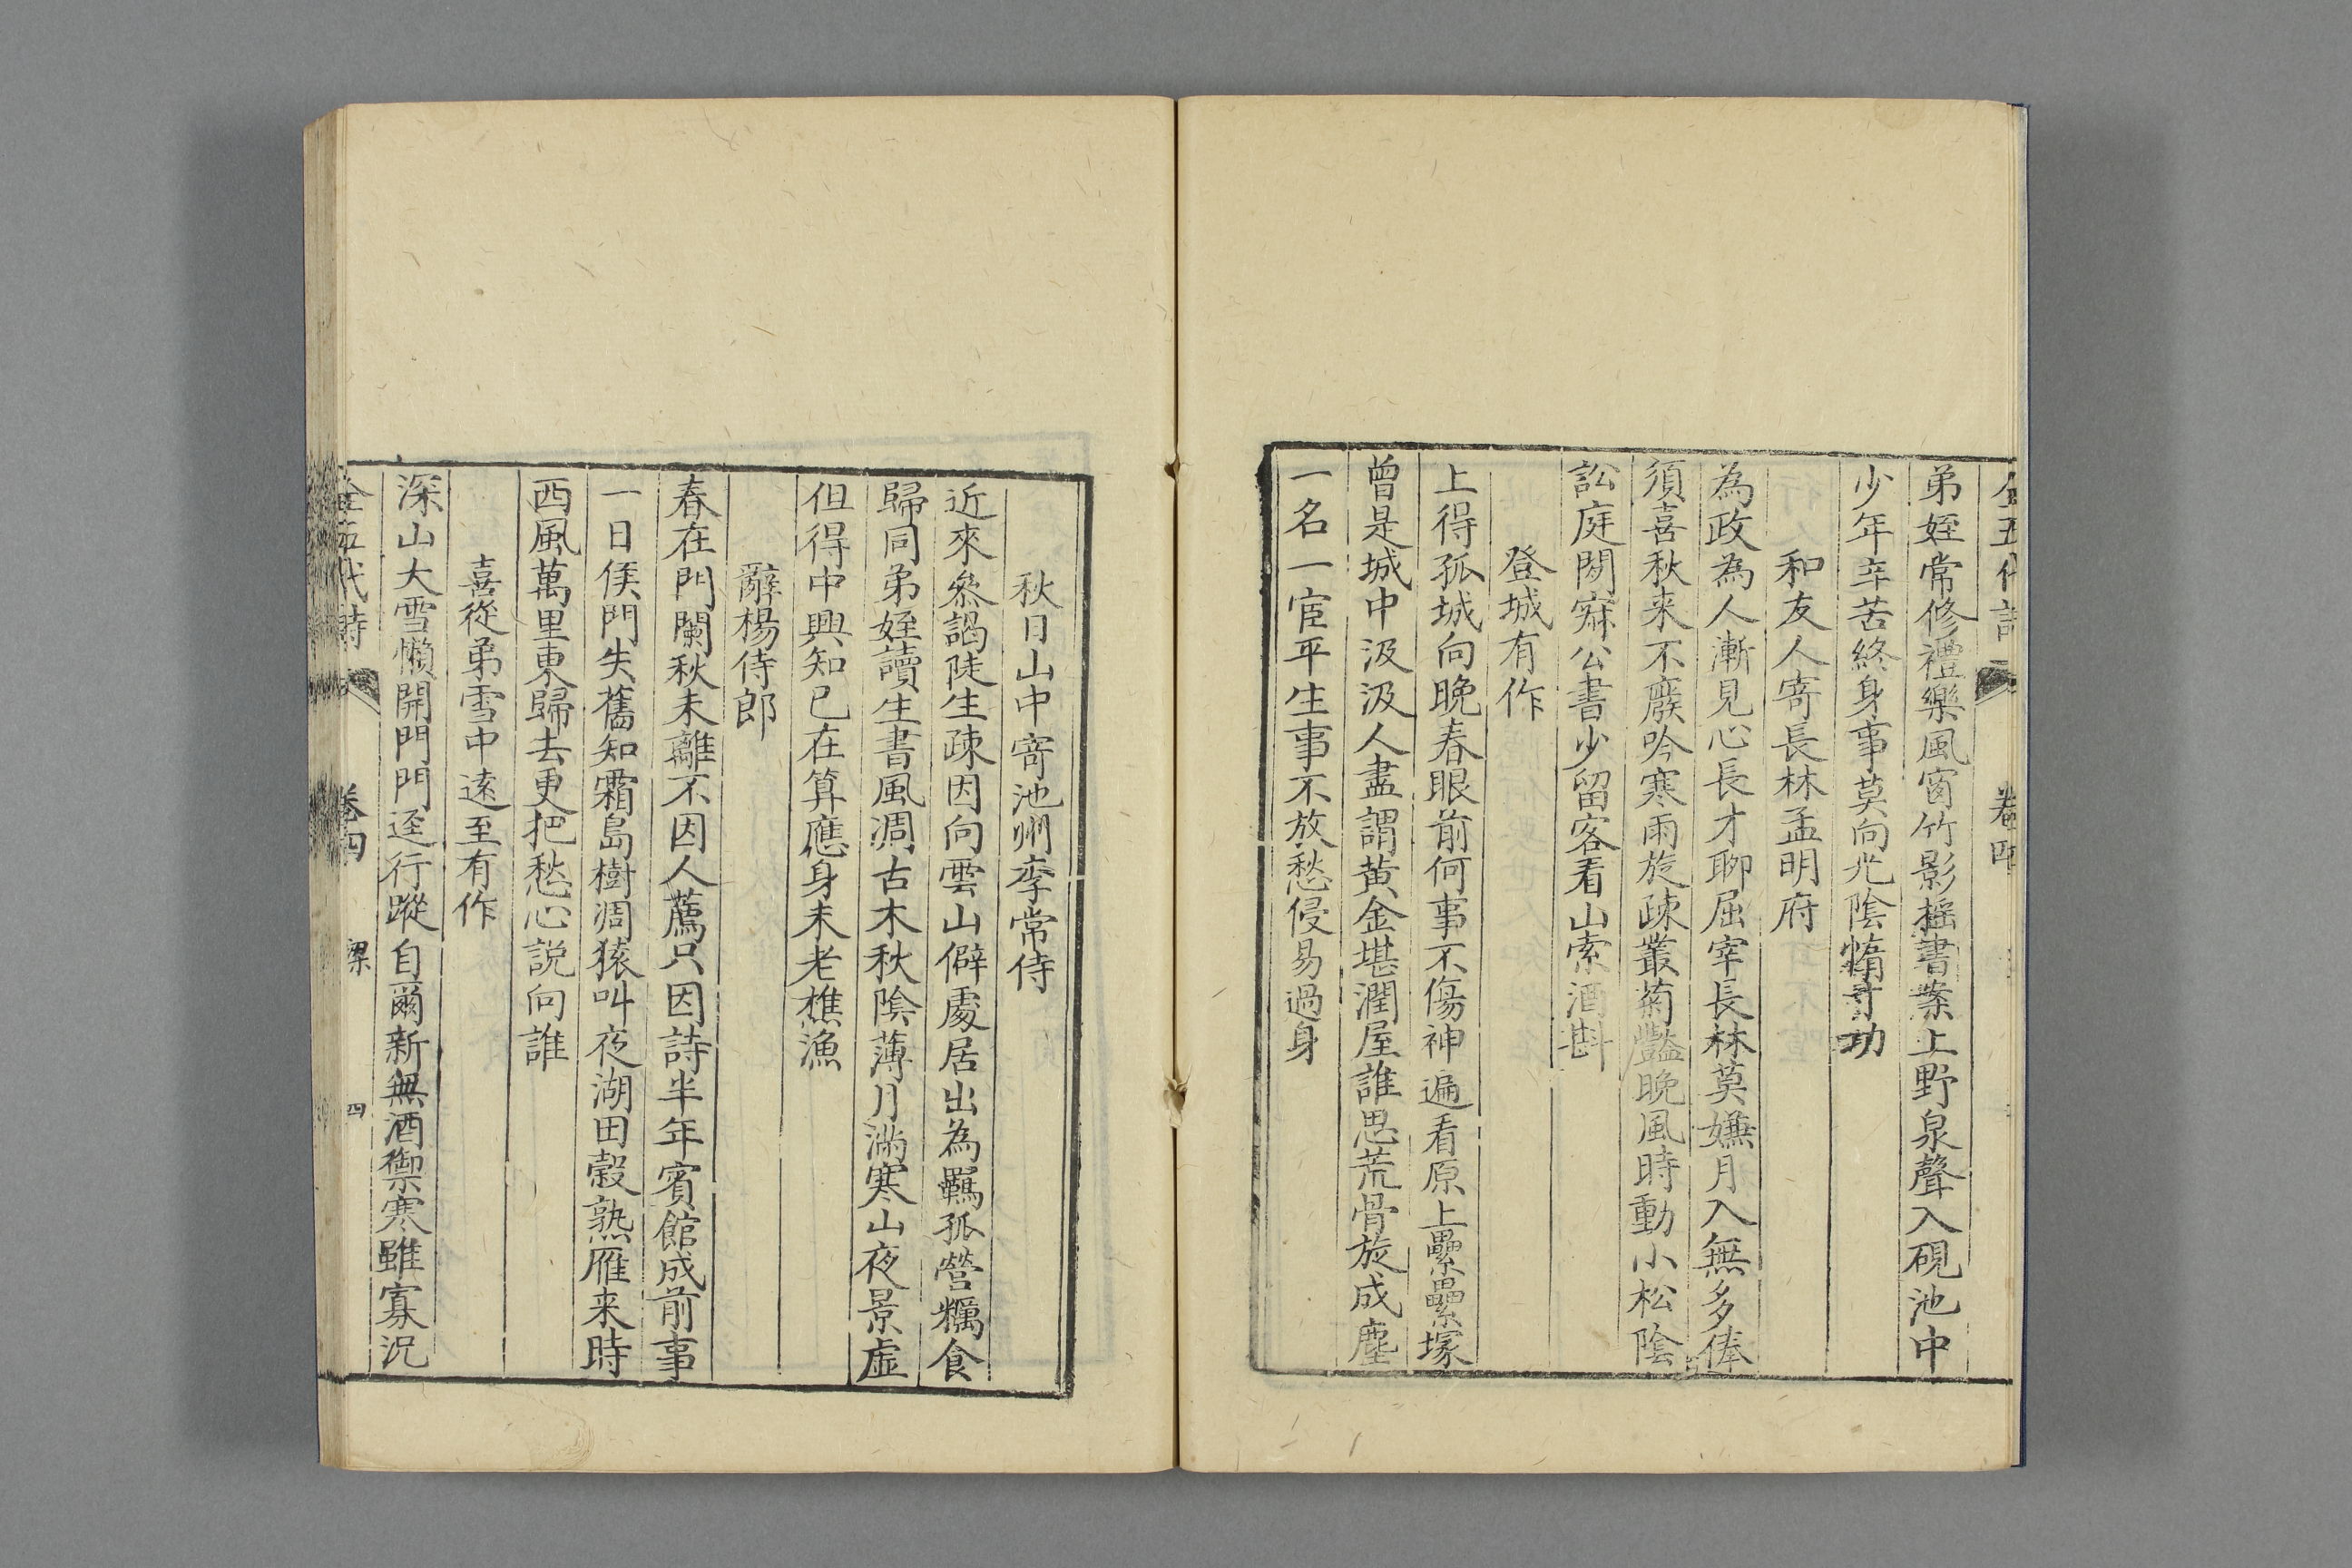 全五代詩 卷四
弟姪常修禮樂風窗竹影揺書案上野泉聲入硯池中
少年辛苦終身事莫向光陰惰寸功
和友人寄長林孟明府
為政為人漸見心長才聊屈宰長林莫嫌月入無多俸
須喜秋来不廢吟寒雨旋疎叢菊豔晚風時動小松陰
訟庭閒寂公書少留客看山索酒斟
登城有作
上得孤城向晚春眼前何事不傷神遍看原上纍纍塚
曾是城中汲汲人盡謂黄金堪潤屋誰思荒骨旋成塵
一名一宦平生事不放愁侵易過身
秋日山中寄池州李常侍
近來叅謁陡生疎因向雲山僻處居出為羈孤營糲食
歸同弟姪讀生書風凋古木秋隂薄月滿寒山夜景虛
但得中興知已在算應身未老樵漁
辭楊侍郎
春在門闌秋未離不因人薦只因詩半年賓館成前事
一日侯門失舊知霜島樹凋猿叫夜湖田穀熟雁来時
西風萬里東歸去更把愁心説向誰
喜從弟雪中遠至有作
深山大雪懶開門門逕行蹤自爾新無酒禦寒雖寡況
全五代詩 卷四 梁 四